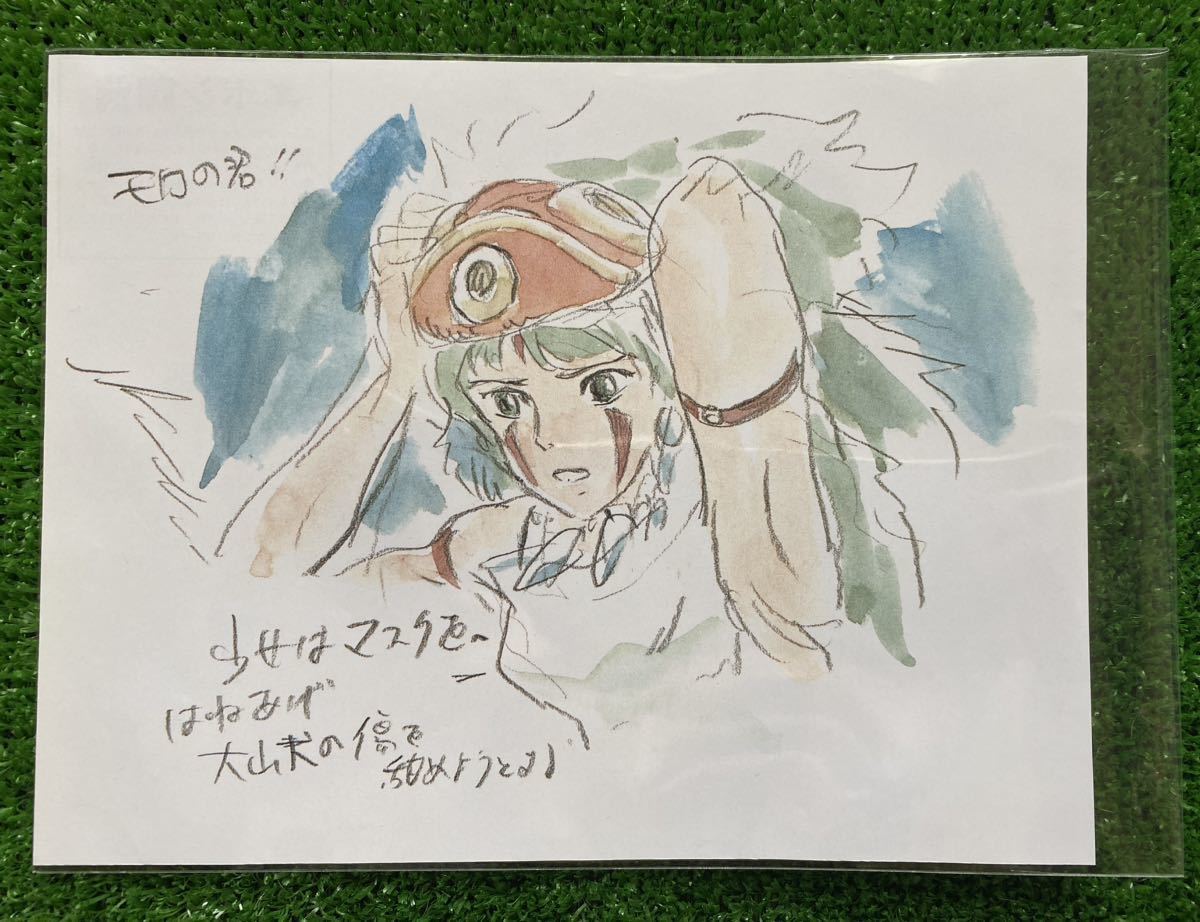 モロの君!!
少女はマスクを
はねあげ
大山犬の傷を
舐めようとする